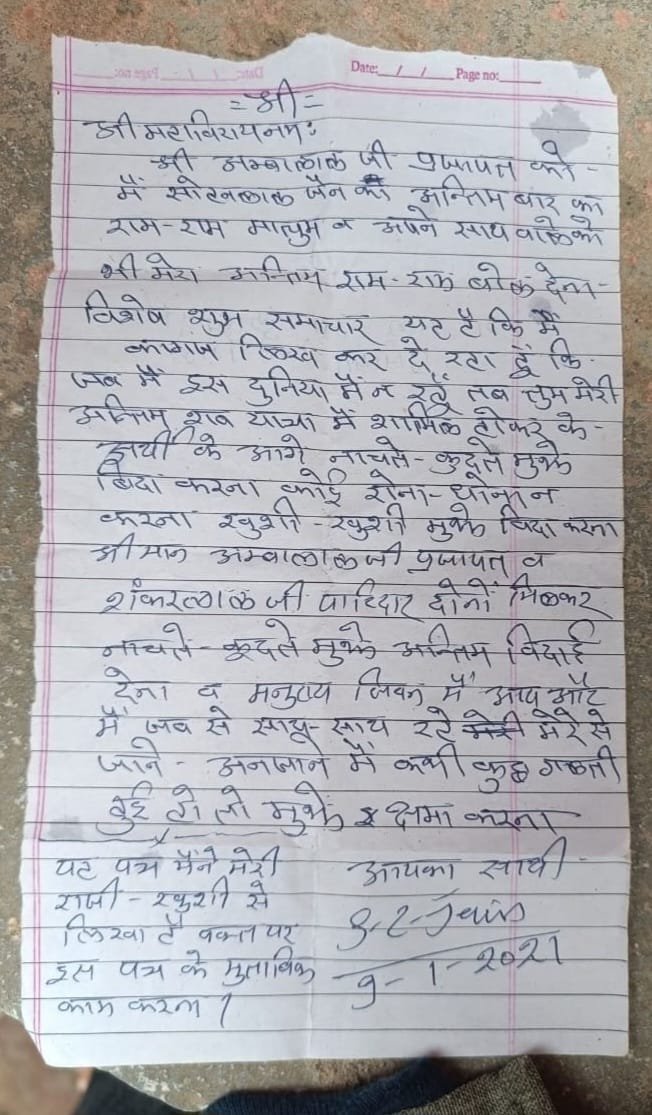 Date: / / Page no:
= श्री =
श्री महाविरायनमः
श्री अम्बालाल जी प्रजापत को -
मैं सोहनलाल जैन की अन्तिम बार का
राम-राम मालुम व अपने साथ वाले को
भी मेरा अन्तिम राम-राम बोल देना -
विशेष शुभ समाचार यह है कि मैं
कागज लिख कर दे रहा हूँ कि
जब मैं इस दुनिया मैं न रहूँ तब तुम मेरी
अन्तिम शव यात्रा मैं शामिल होकर के -
अर्थी के आगे नाचते-कुदते मुझे
बिदा करना कोई रोना-धोना न
करना खुशी-खुशी मुझे विदा करना
श्रीमान अम्बालालजी प्रजापत व
शंकरलाल जी पाटिदार दोनों मिलकर
नाचते-कूदते मुझे अन्तिम विदाई
देना व मनुष्य जिवन मैं आप और
मैं जब से साथ-साथ रहे मेरे से
जाने-अनजाने मैं कभी कुछ गलती
हुई हो तो मुझे क्षमा करना
यह पत्र मैंने मेरी
राजी-खुशी से
लिखा है वक्त पर
इस पत्र के मुताबिक
काम करना ।
आपका साथी
S.L. Jain
9-1-2021